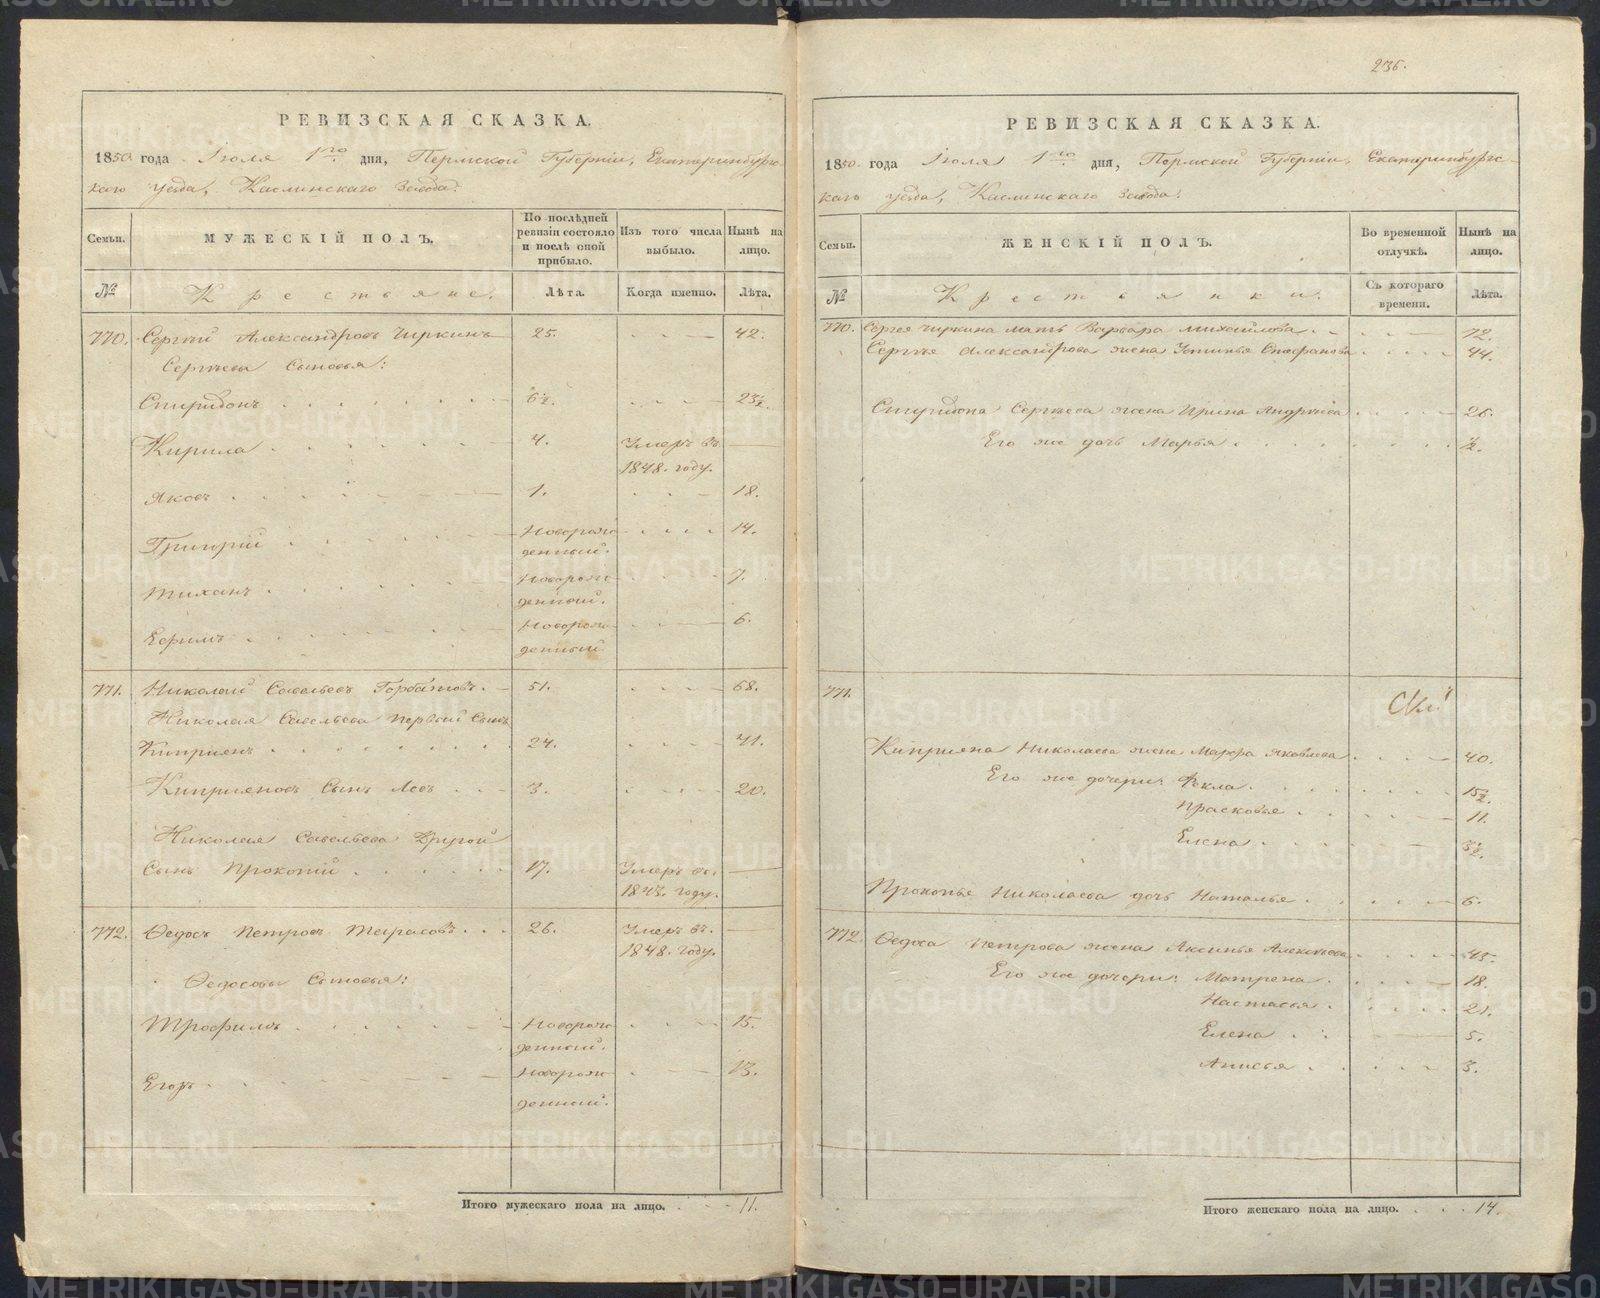 РЕВИЗСКАЯ СКАЗКА.
1850 года Iюля 1го дня, Пермской Губернiи, Екатеринбургс-
каго уезда, Каслинскаго Завода.
Семьи.
МУЖЕСКIЙ ПОЛЪ.
По послѣдней ревизiи состояло и послѣ оной прибыло.
Изъ того числа выбыло.
Нынѣ на лицо.
№
Крестьяне.
Лѣта.
Когда именно.
Лѣта.
770. Сергѣй Александровъ Чиркинъ 25. 42.
Сергѣева Сыновья:
Спиридонъ 6½. 23½.
Кирила 4. Умеръ въ
1848. году.
Яковъ 1. 18.
Григорiй Новорож- 14.
денный.
Тиханъ Новорож- 7.
денный.
Ефимъ Новорож- 6.
денный
771. Николай Савельевъ Горбатовъ. 51. 68.
Николая Савельева первый Сынъ
Киприянъ 24. 41.
Киприяновъ Сынъ Левъ 3. 20.
Николая Савельева Другой
Сынъ Прокопiй 17. Умеръ въ.
1843. году.
772. Ѳедосъ Петровъ Тарасовъ 26. Умеръ въ.
1848. году.
Ѳедосовы Сыновья:
Трофимъ Новорож- 15.
денный.
Егоръ Новорож- 13.
денный.
Итого мужескаго пола на лицо. 11.
236.
РЕВИЗСКАЯ СКАЗКА.
1850 года Iюля 1го дня, Пермской Губернiи, Екатеринбургс-
каго уезда, Каслинскаго Завода.
Семьи.
ЖЕНСКIЙ ПОЛЪ.
Во временной отлучкѣ.
Нынѣ на лицо.
№
Крестьянки.
Съ котораго времени.
Лѣта.
770. Сѣргея Чиркина мать Варвара Михайлова 72.
Сергѣя Александрова жена Устинья Стефанова 44.
Спиридона Сергѣева жена Ирина Андреева 26.
Его же дочь Марья ½.
771.
Киприяна Николаева жена Марфа Яковлева 40.
Его же дочери: Фекла 15½.
Прасковья 11.
Елена 3½.
Прокопья Николаева дочь Наталья 6.
772. Ѳедоса Петрова жена Аксинья Алексѣева 45.
Его же дочери: Матрена 18.
Настасья 21.
Елена 5.
Анисья 3.
Итого женскаго пола на лицо. 14.
METRIKI.GASO-URAL.RU